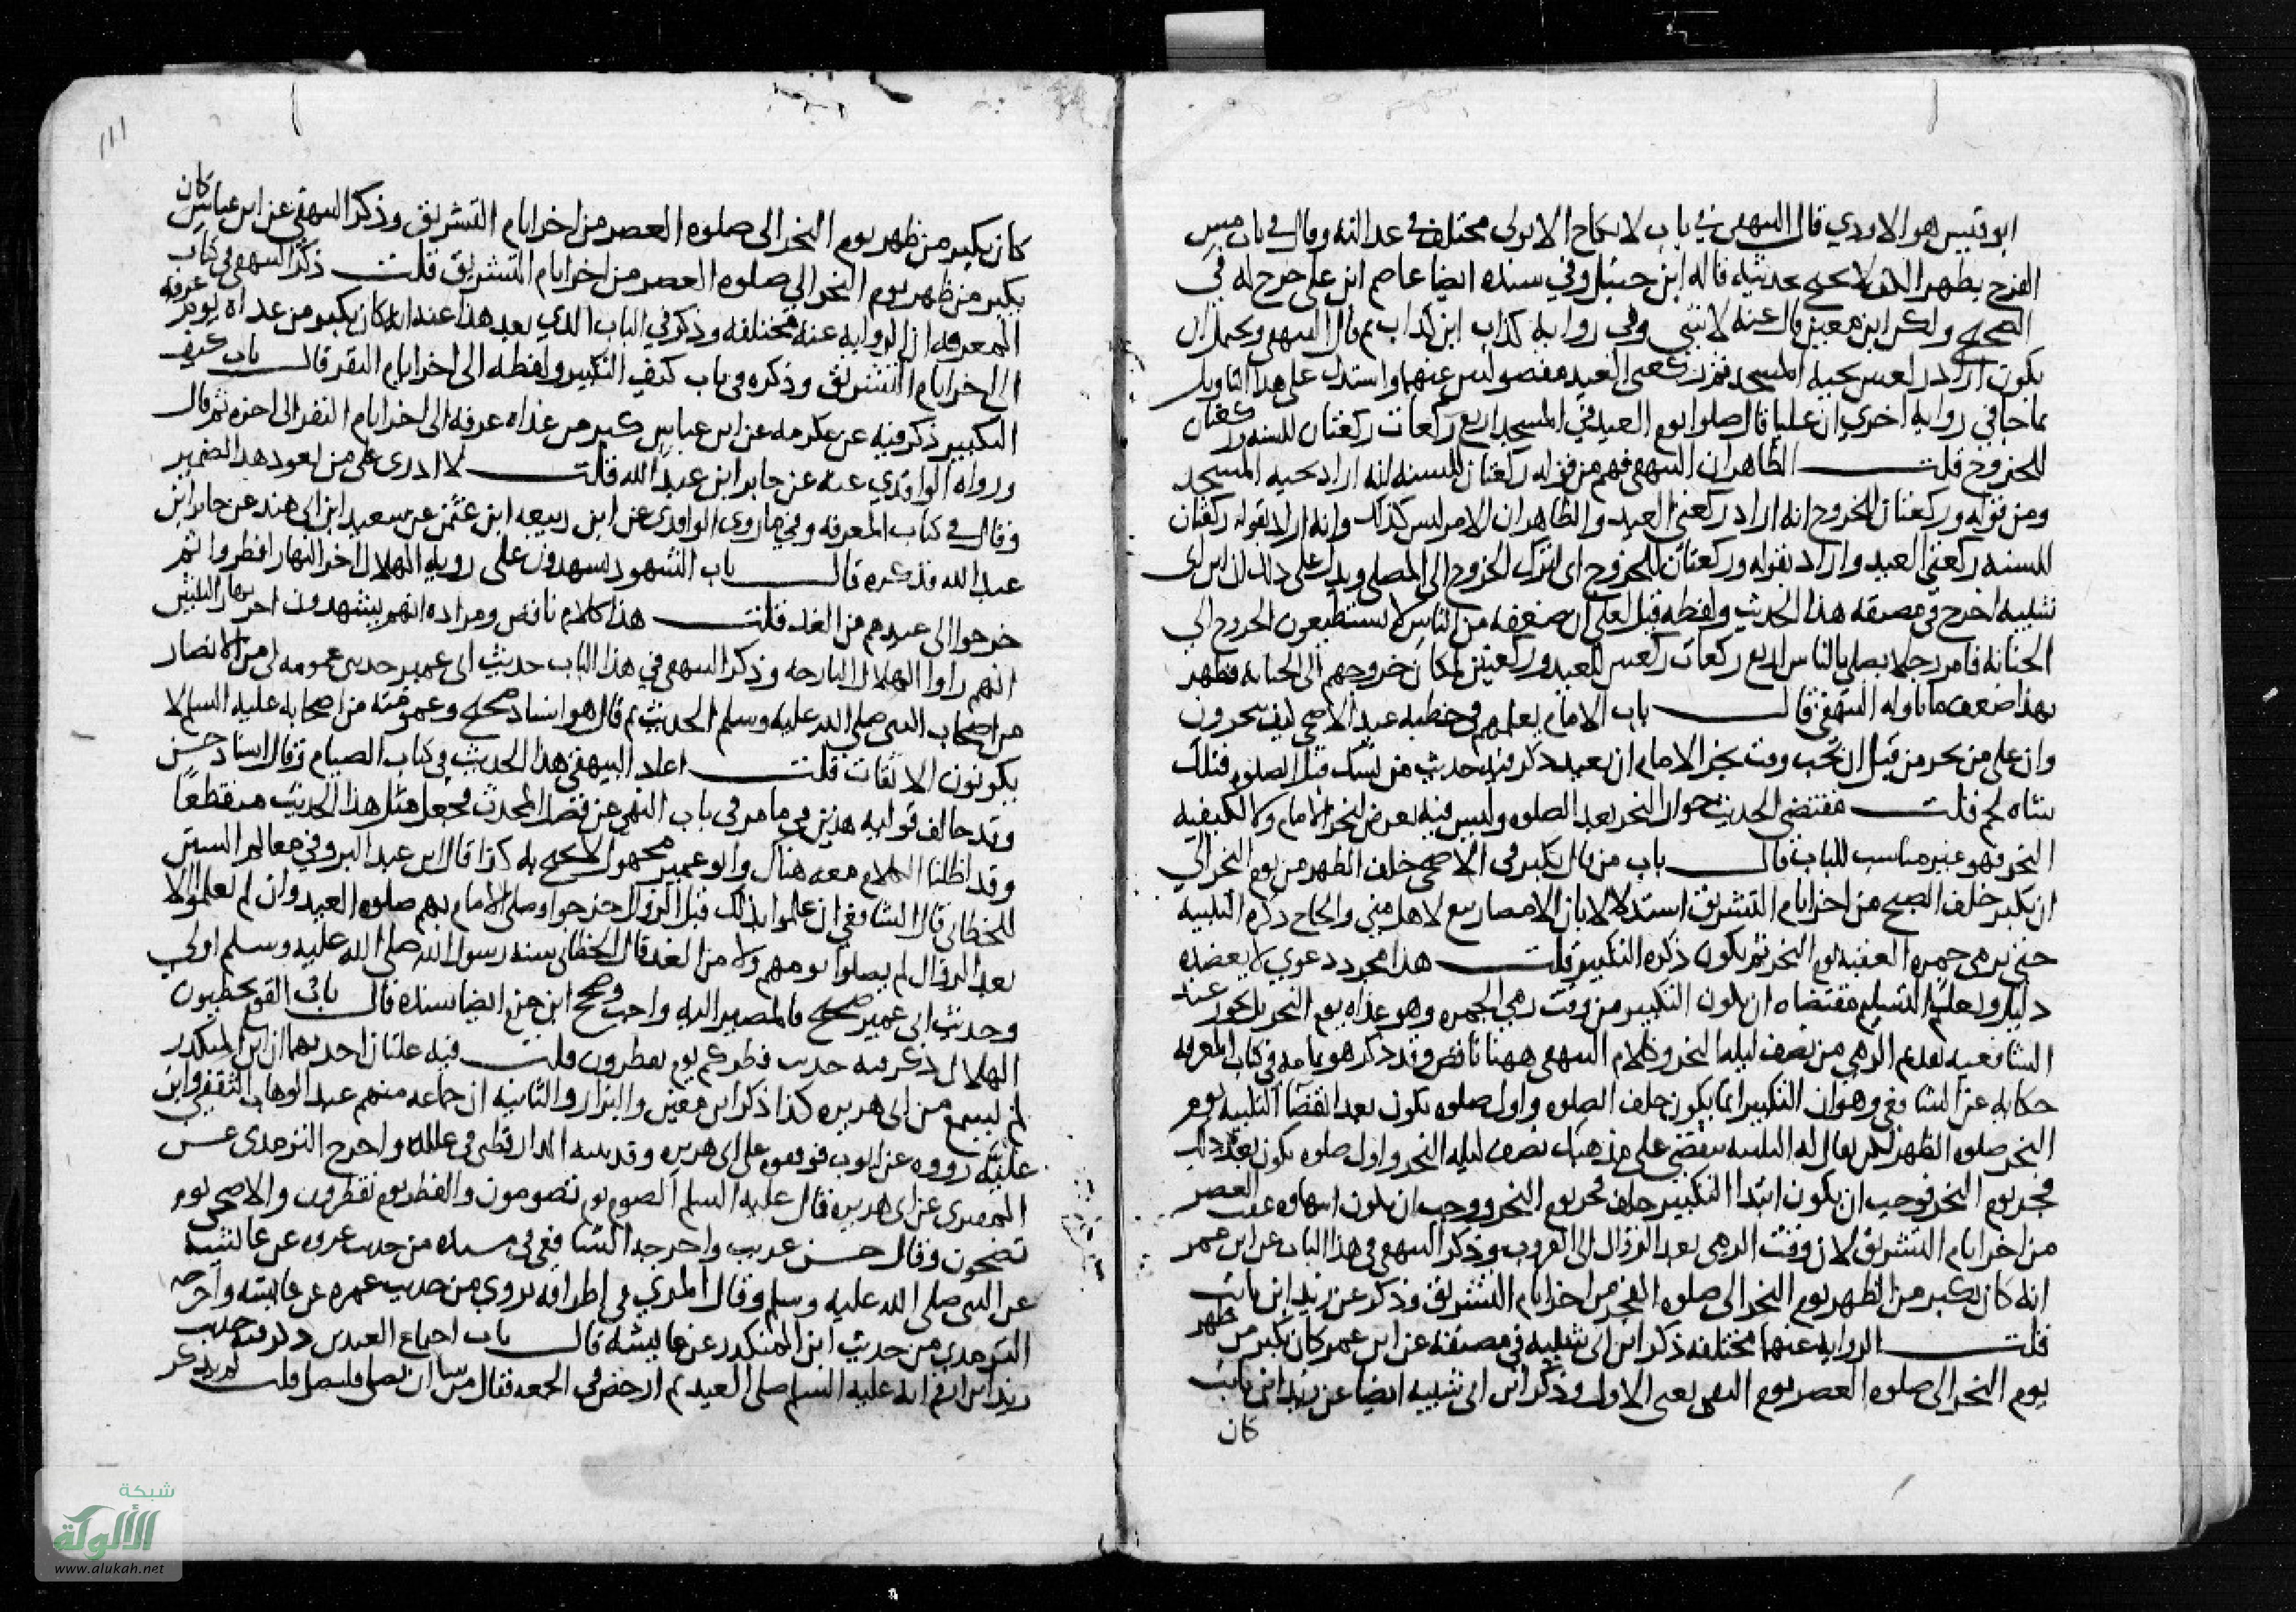 ابو قيس هو الاودي قال البيهقي في باب لا نكاح الا بولي مختلف في عدالته وقال في باب مس
الفرج بظهر الكف لا يحتج بحديثه قاله ابن حنبل وفي سنده ايضا عاصم ابن علي خرج له في
الصحيح ولكن ابن معين قال عنه لا شي وفي رواية كذاب ابن كذاب ثم قال البيهقي ويحتمل ان
يكون اراد ركعتين تحية المسجد ثم ركعتي العيد مفصولتين عنهما واستدل على هذا التاويل
بما جا في رواية اخري ان عليا قال صلوا يوم العيد في المسجد اربع ركعات ركعتان للسنة وركعتان
للخروج قلت الظاهر ان البيهقي فهم من قوله ركعتان للسنة انه اراد تحية المسجد
ومن قوله وركعتان للخروج انه اراد ركعتي العيد والظاهر ان الامر ليس كذلك وانه اراد بقوله ركعتان
للسنة ركعتي العيد واراد بقوله وركعتان للخروج اي لترك الخروج الى المصلى ويدل على ذلك ان ابن ابي
شيبة اخرج في مصنفه هذا الحديث ولفظه قيل لعلي ان ضعفة من الناس لا يستطيعون الخروج الي
الجبانة فامر رجلا يصلي بالناس اربع ركعات ركعتين للعيد وركعتين لمكان خروجهم الى الجبانة فظهر
بهذا ضعف ما تاوله البيهقي قال باب الامام يعلمهم في خطبة عيد الاضحى كيف ينحرون
وان على من نحر من قبل ان يجب وقت نحر الامام ان يعيد ذكر فيه حديث من نسك قبل الصلوة فتلك
شاة لحم قلت مقتضى الحديث جواز النحر بعد الصلوة وليس فيه تعرض لنحر الامام ولا لكيفية
النحر فهو غير مناسب للباب قال باب من قال يكبر في الاضحى خلف الظهر من يوم النحر الي
ان يكبر خلف الصبح من اخر ايام التشريق استدلالا بان الامصار تبع لاهل منى والحاج ذكره التلبية
حتى يرمي جمرة العقبة يوم النحر ثم يكون ذكره التكبير قلت هذا مجرد دعوي لا يعضده
دليل ولعل التسليم مقتضاه ان يكون التكبير من وقت رمي الجمرة وهو غداة يوم النحر بل يجوز عند
الشافعية تقديم الرمي من نصف ليلة النحر وكلام البيهقي ههنا ناقص وقد ذكر هو تمامه في كتاب المعرفة
حكاية عن الشافعي وهو ان التكبير انما يكون خلف الصلوة واول صلوة تكون بعد انقضا التلبية يوم
النحر صلوة الظهر لكن يقال له التلبية تنقضي على مذهبك نصف ليلة النحر واول صلوة تكون بعد ذلك
فجر يوم النحر فوجب ان يكون ابتدا التكبير خلف فجر يوم النحر ووجب ان يكون انتهاوه عقيب العصر
من اخر ايام التشريق لان وقت الرمي بعد الزوال الى الغروب وذكر البيهقي في هذا الباب عن ابن عمر
انه كان يكبر من الظهر يوم النحر الى صلوة الفجر من اخر ايام التشريق وذكر عن زيد ابن ثابت
قلت الرواية عنهما مختلفة ذكر ابن ابي شيبة في مصنفه عن ابن عمر كان يكبر من ظهر
يوم النحر الى صلوة العصر يوم النفر يعني الاول وذكر ابن ابي شيبة ايضا عن زيد ابن ثابت
كان
111
كان يكبر من ظهر يوم النحر الى صلوة العصر من اخر ايام التشريق وذكر البيهقي عن ابن عباس كان
يكبر من ظهر يوم النحر الي صلوة العصر من اخر ايام التشريق قلت ذكر البيهقي في كتاب
المعرفة ان الرواية عنه مختلفة وذكر في الباب الذي بعد هذا عنه انه كان يكبر من غداة يوم عرفة
الى اخر ايام التشريق وذكره في باب كيف التكبير ولفظه الى اخر ايام النفر قال باب كيف
التكبير ذكر فيه عن عكرمة عن ابن عباس كبر من غداة عرفة الى اخر ايام النفر الى اخره ثم قال
ورواه الواقدي عنه عن جابر ابن عبد الله قلت لا ادرى على من يعود هذا الضمير
وقال في كتاب المعرفة وفي ما روى الواقدي عن ابن ربيعة ابن عثمن عن سعيد ابن ابي هند عن جابر ابن
عبد الله فذكره قال باب الشهود يشهدون على روية الهلال اخر النهار افطروا ثم
خرجوا الى عيدهم من الغد قلت هذا كلام ناقص ومراده انهم يشهدون اخر نهار الثلثين
انهم راوا الهلال البارحة وذكر البيهقي في هذا الباب حديث ابى عمير حدثني عمومة لى من الانصار
من اصحاب النبي صلى الله عليه وسلم الحديث ثم قال هو اسناد صحيح وعمومته من اصحابه عليه السلم لا
يكونون الا ثقات قلت اعاد البيهقي هذا الحديث في كتاب الصيام وقال اسناد حسن
وقد خالف قوليه هذين في ما مر في باب النهي عن فضل المحدث فجعل مثل هذا الحديث منقطعا
وقد اطلنا الكلام معه هناك وابو عمير مجهول لا يحتج به كذا قال ابن عبد البر وفي معالم السنن
للخطابي قال الشافعي ان علموا بذلك قبل الزوال خرجوا وصلى الامام بهم صلوة العيد وان لم يعلموا الا
بعد الزوال لم يصلوا يومهم ولا من الغد قال الخطابي سنة رسول الله صلى الله عليه وسلم اولي
وحديث ابى عمير صحيح فالمصير اليه واجب وصحح ابن حزم ايضا سنده قال باب القوم يخطيون
الهلال ذكر فيه حديث فطركم يوم تفطرون قلت فيه علتان احديهما ان ابن المنكدر
لم يسمع من ابى هريرة كذا ذكر ابن معين والبزار والثانية ان جماعة منهم عبد الوهاب الثقفي وابن
علية رووه عن ايوب فوقفوه على ابي هريرة وقد بينه الدارقطني في علله واخرج الترمذي عن
المقبري عن ابي هريرة قال عليه السلم الصوم يوم تصومون والفطر يوم تفطرون والاضحى يوم
تضحون وقال حسن غريب واخرجه الشافعي في مسنده من حديث عروة عن عائشة
عن النبي صلى الله عليه وسلم وقال المزي في اطرافه يروي من حديث عمرة عن عائشة واخرجه
الترمذي من حديث ابن المنكدر عن عائشة قال باب اجتماع العيدين ذكر فيه حديث
زيد ابن ارقم انه عليه السلم صلى العيد ثم ارخص في الجمعة فقال من شا ان يصلي فليصل قلت لم يذكر
شبكة
الألوكة
www.alukah.net